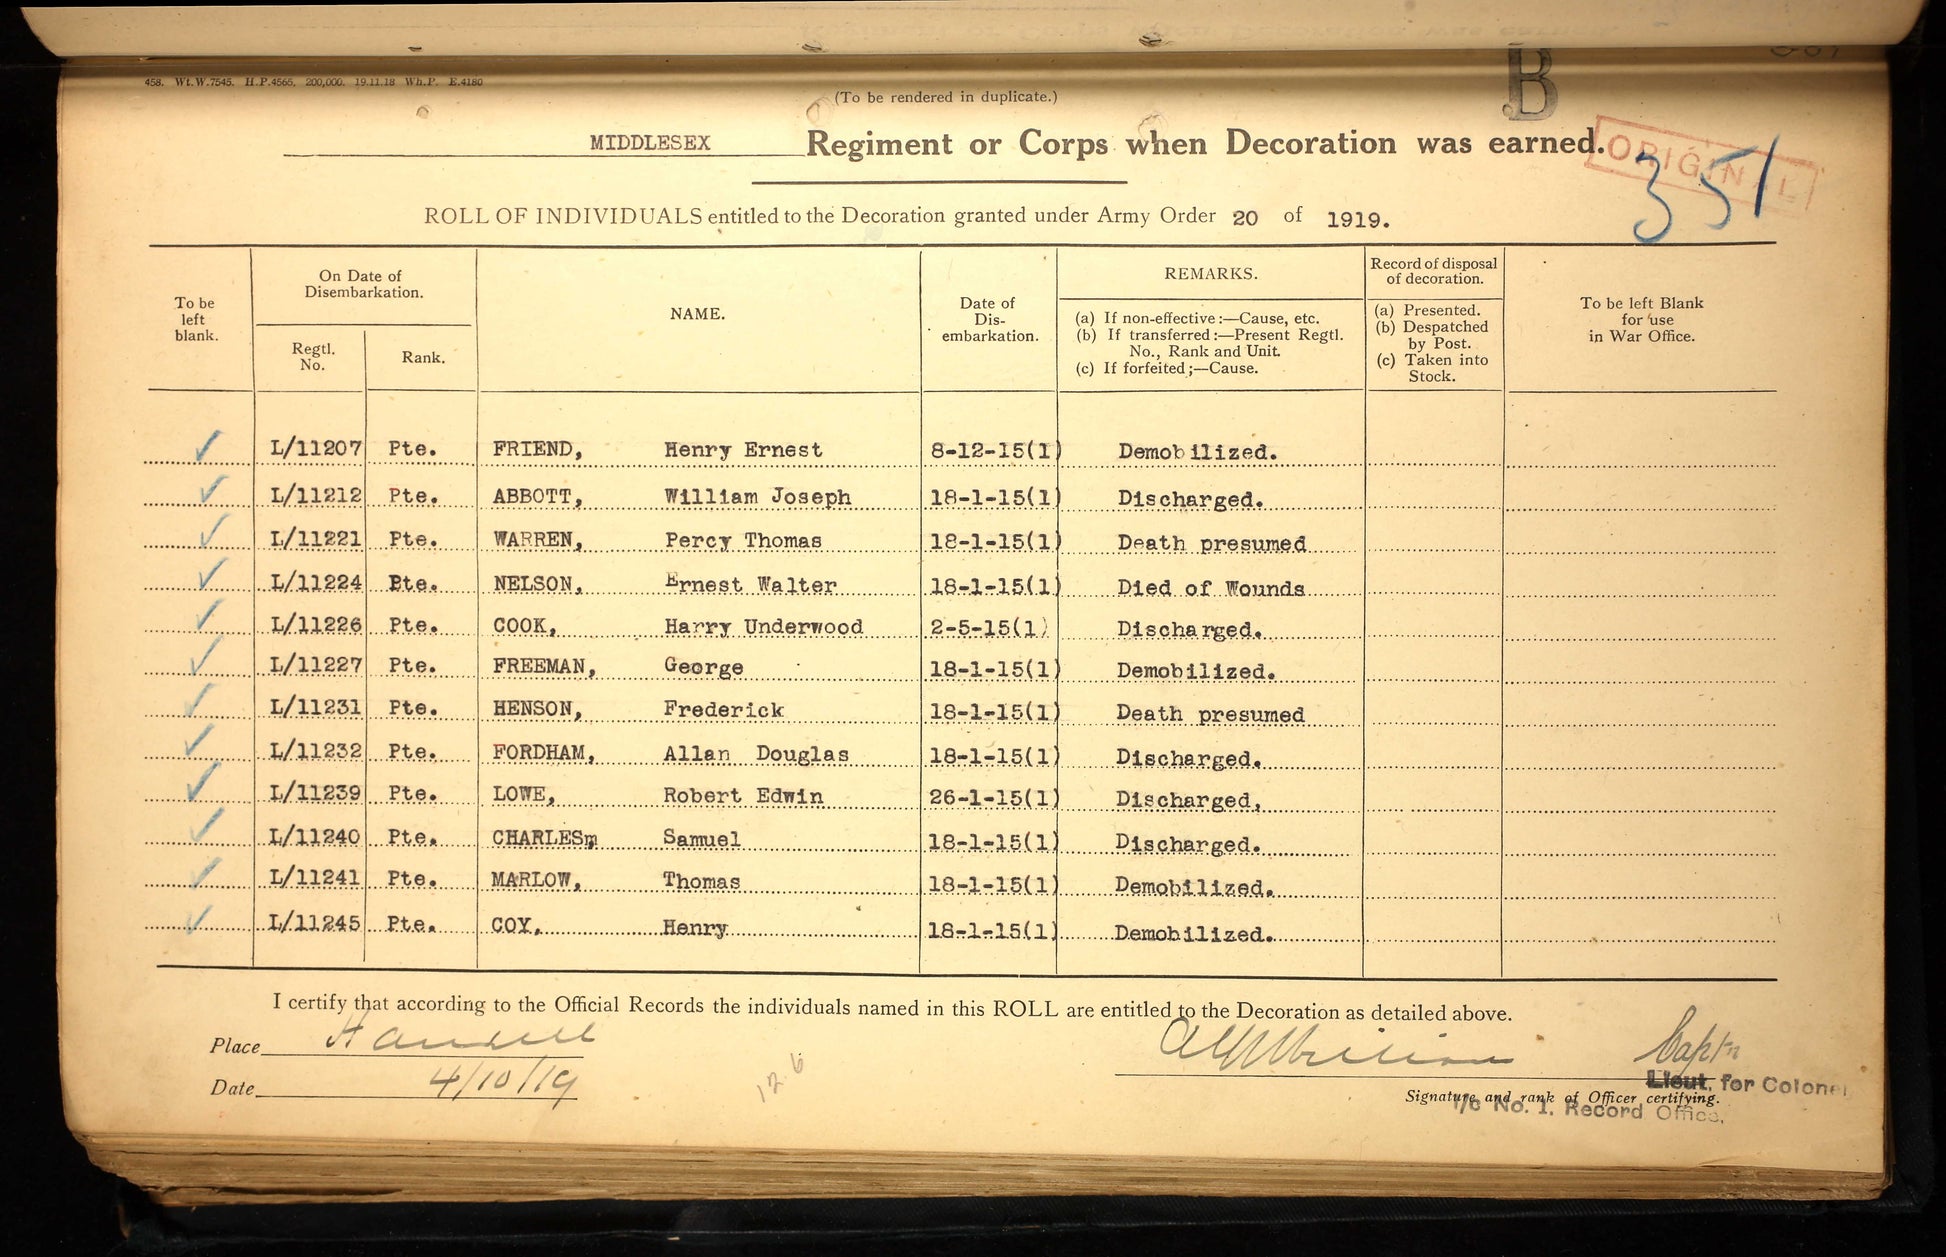 458. Wt.W.7545. H.P.4565. 200,000. 19.11.18 Wh.P. E.4180
B
(To be rendered in duplicate.)
MIDDLESEX Regiment or Corps when Decoration was earned.
ORIGINAL
351
ROLL OF INDIVIDUALS entitled to the Decoration granted under Army Order 20 of 1919.
To be left blank.
On Date of Disembarkation.
Regtl. No.
Rank.
NAME.
Date of Dis-embarkation.
REMARKS.
(a) If non-effective:—Cause, etc.
(b) If transferred:—Present Regtl. No., Rank and Unit.
(c) If forfeited;—Cause.
Record of disposal of decoration.
(a) Presented.
(b) Despatched by Post.
(c) Taken into Stock.
To be left Blank for use in War Office.
L/11207 Pte. FRIEND, Henry Ernest 8-12-15(1) Demobilized.
L/11212 Pte. ABBOTT, William Joseph 18-1-15(1) Discharged.
L/11221 Pte. WARREN, Percy Thomas 18-1-15(1) Death presumed
L/11224 Pte. NELSON, Ernest Walter 18-1-15(1) Died of Wounds
L/11226 Pte. COOK, Harry Underwood 2-5-15(1) Discharged.
L/11227 Pte. FREEMAN, George 18-1-15(1) Demobilized.
L/11231 Pte. HENSON, Frederick 18-1-15(1) Death presumed
L/11232 Pte. FORDHAM, Allan Douglas 18-1-15(1) Discharged.
L/11239 Pte. LOWE, Robert Edwin 26-1-15(1) Discharged,
L/11240 Pte. CHARLESm Samuel 18-1-15(1) Discharged.
L/11241 Pte. MARLOW, Thomas 18-1-15(1) Demobilized.
L/11245 Pte. COY, Henry 18-1-15(1) Demobilized.
I certify that according to the Official Records the individuals named in this ROLL are entitled to the Decoration as detailed above.
Place
Captn
Date 4/10/19
126
Lieut, for Colonel
Signature and rank of Officer certifying.
i/c No. 1. Record Office.